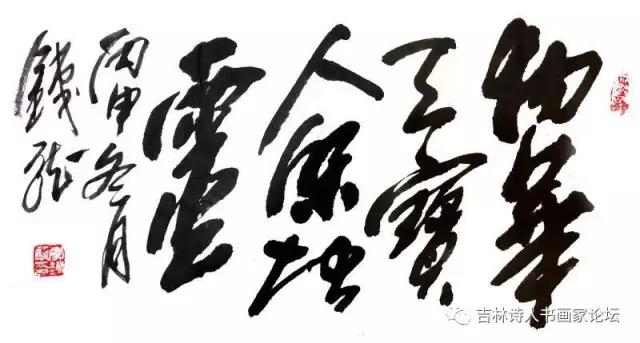 物華
天寶
人傑地
靈
丙申冬月
錢
吉林诗人书画家论坛